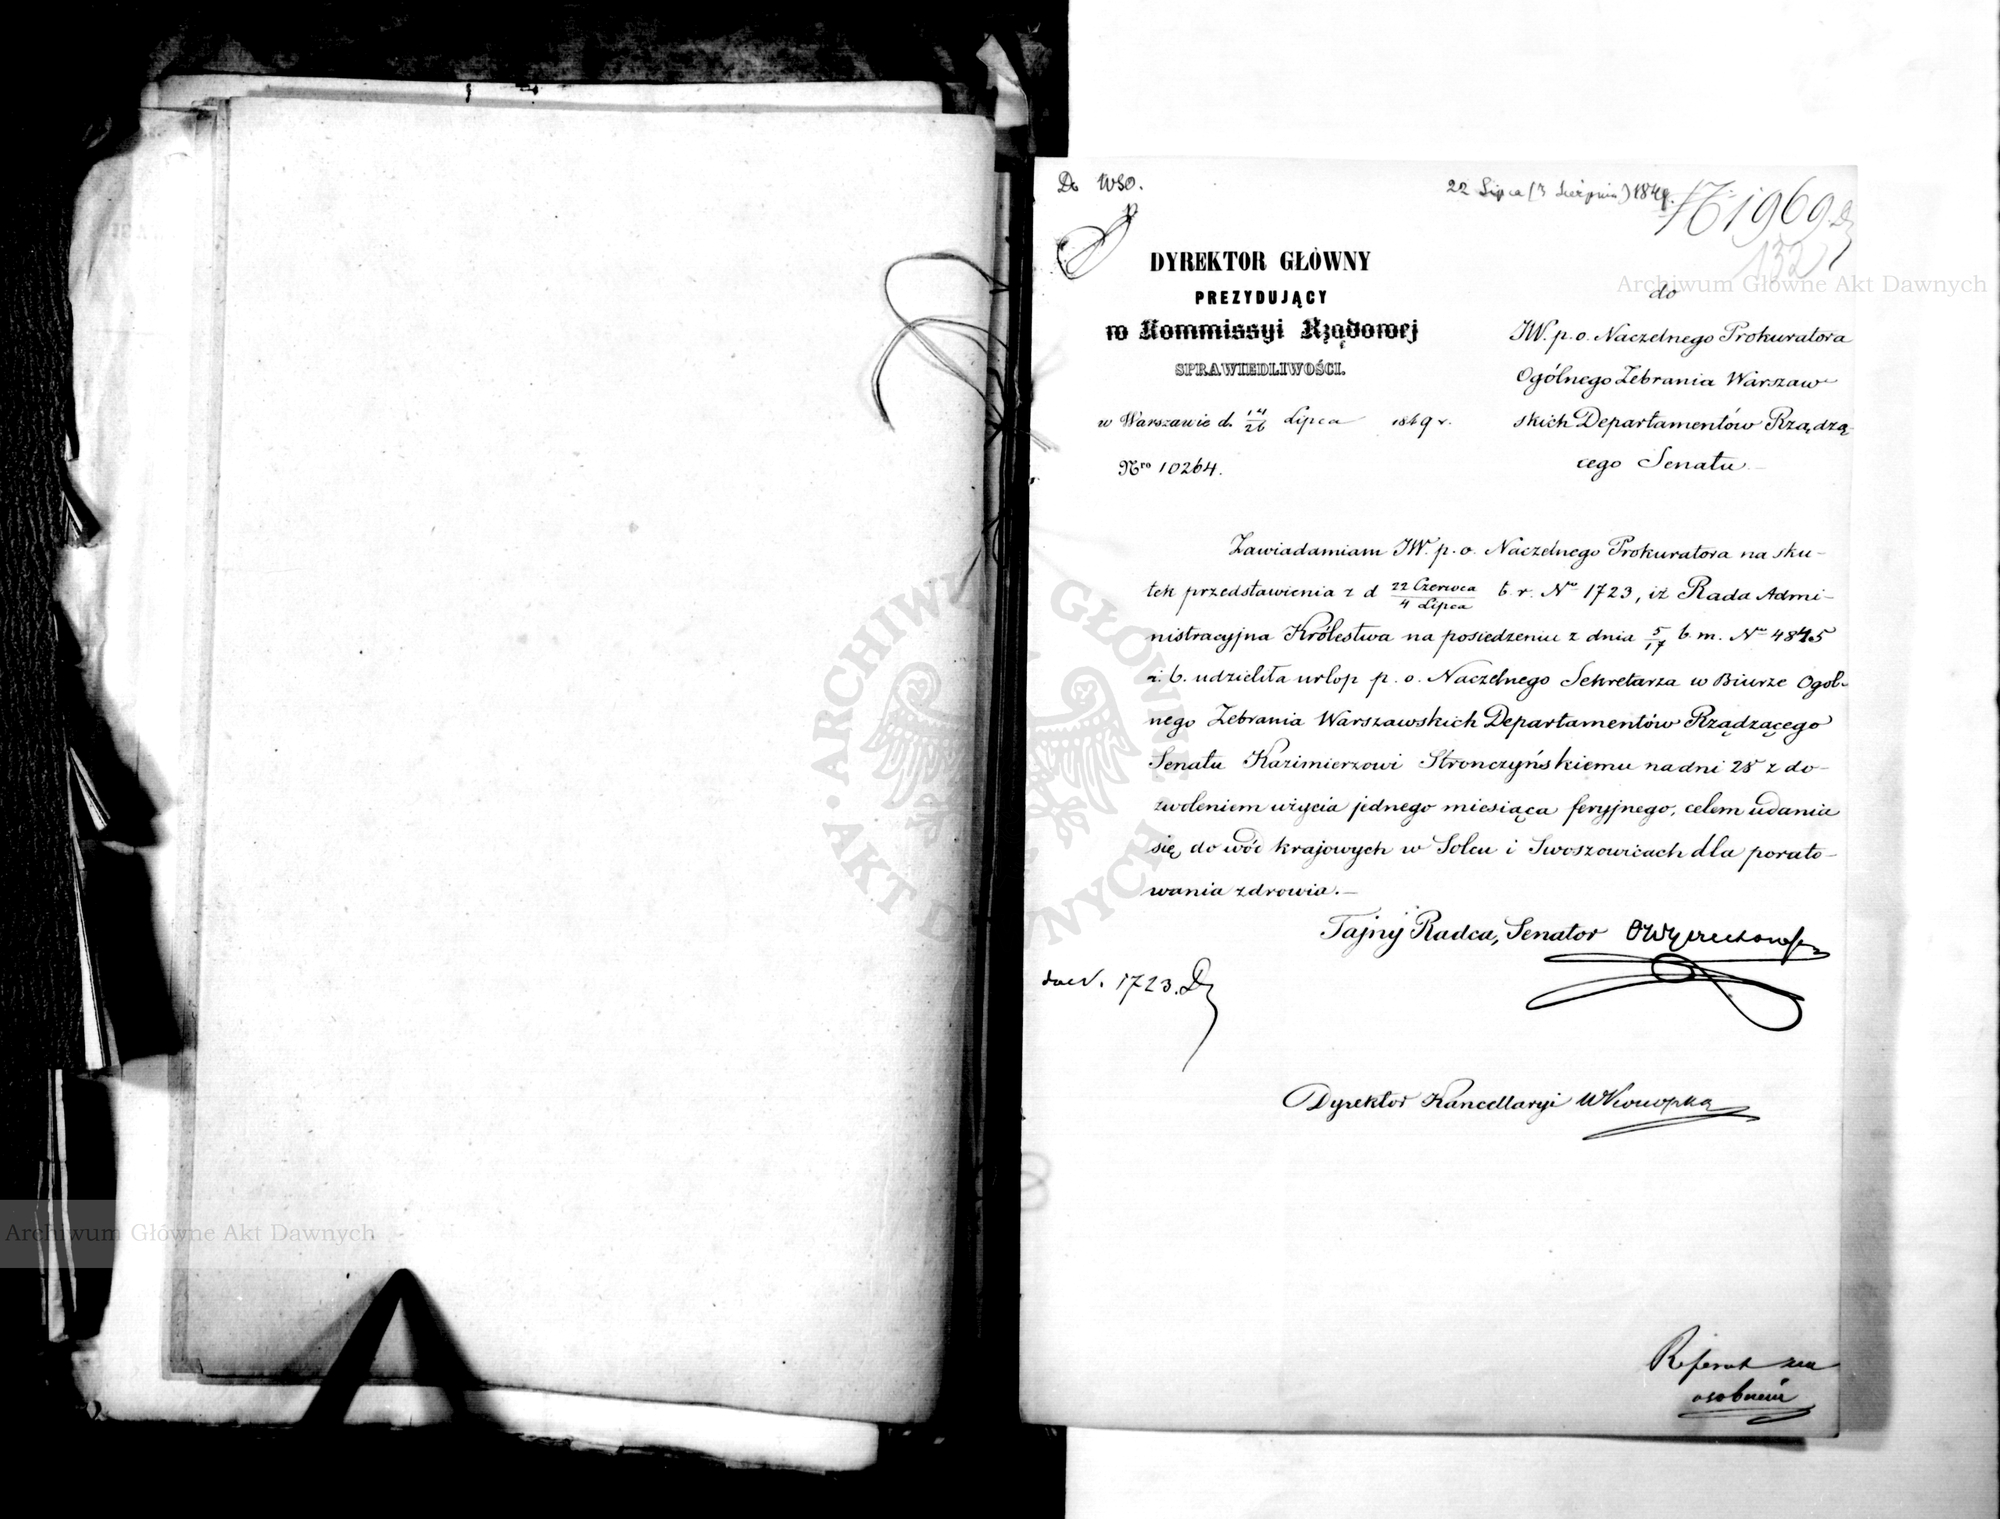 Do WSO.
22 Lipca (3 Sierpnia) 1849.
1969
132
DYREKTOR GŁÓWNY
PREZYDUJĄCY
w Kommissyi Rządowej
SPRAWIEDLIWOŚCI.
w Warszawie d. 14/26 Lipca 1849 r.
Nro 10264.
do
JW. p. o. Naczelnego Prokuratora
Ogólnego Zebrania Warszaw-
skich Departamentów Rządzą-
cego Senatu
Zawiadamiam JW. p. o. Naczelnego Prokuratora na sku-
tek przedstawienia z d 22 Czerwca/4 Lipca b. r. Nro 1723, iż Rada Admi-
nistracyjna Królestwa na posiedzeniu z dnia 5/17 b. m. Nro
i. b. udzieliła urlop p. o. Naczelnego Sekretarza w Biurze Ogól-
nego Zebrania Warszawskich Departamentów Rządzącego
Senatu Kazimierzowi Stronczyńskiemu na dni 28 z do-
zwoleniem użycia jednego miesiąca feryjnego, celem udania
się do wód krajowych w Solcu i Swoszowicach dla porato-
wania zdrowia.—
Tajny Radca, Senator OWyczechowski
1723.
Dyrektor Kancellaryi WKonopka
Referat
osobnem
Archiwum Główne Akt Dawnych
Archiwum Główne Akt Dawnych
ARCHIWUM GŁÓWNE • AKT DAWNYCH •